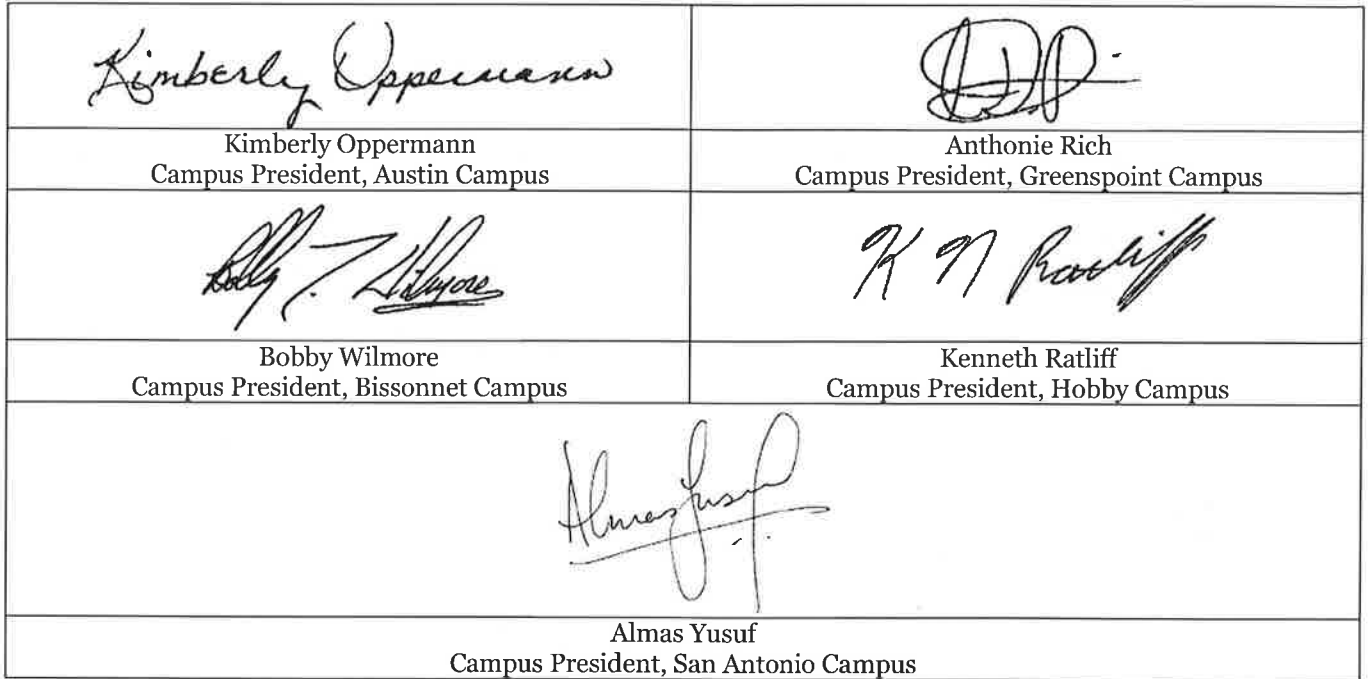 Kimberly Oppermann
Kimberly Oppermann
Campus President, Austin Campus
Anthonie Rich
Campus President, Greenspoint Campus
Bobby T. Wilmore
K N Ratliff
Bobby Wilmore
Campus President, Bissonnet Campus
Kenneth Ratliff
Campus President, Hobby Campus
Almas Yusuf
Almas Yusuf
Campus President, San Antonio Campus